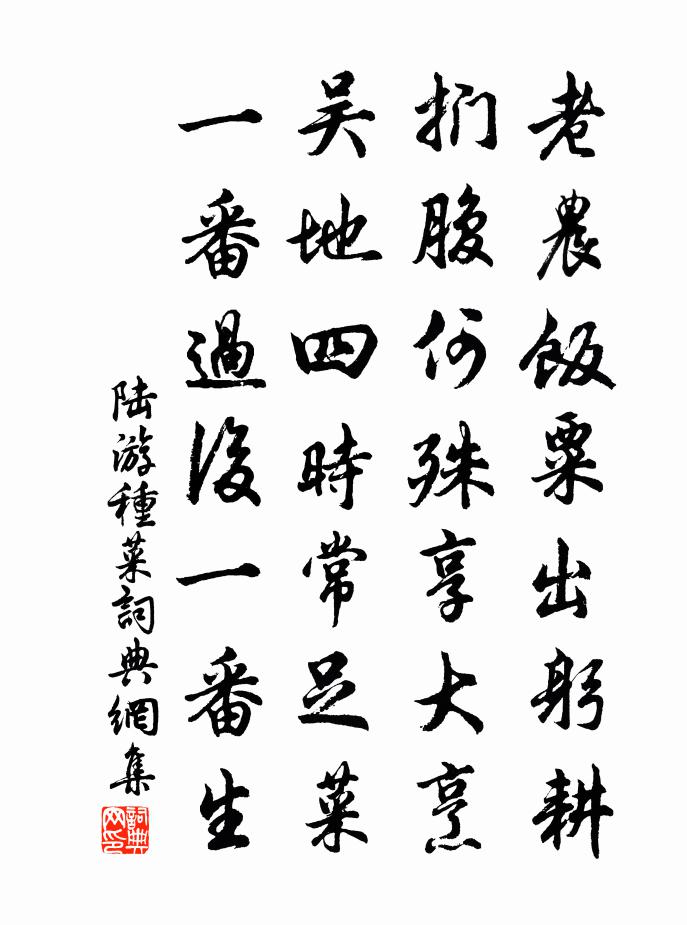 老農飯粟出躬耕
捫腹何殊享大烹
吴地四時常足菜
一番過後一番生
陆游種菜詞典網集
詞典网印